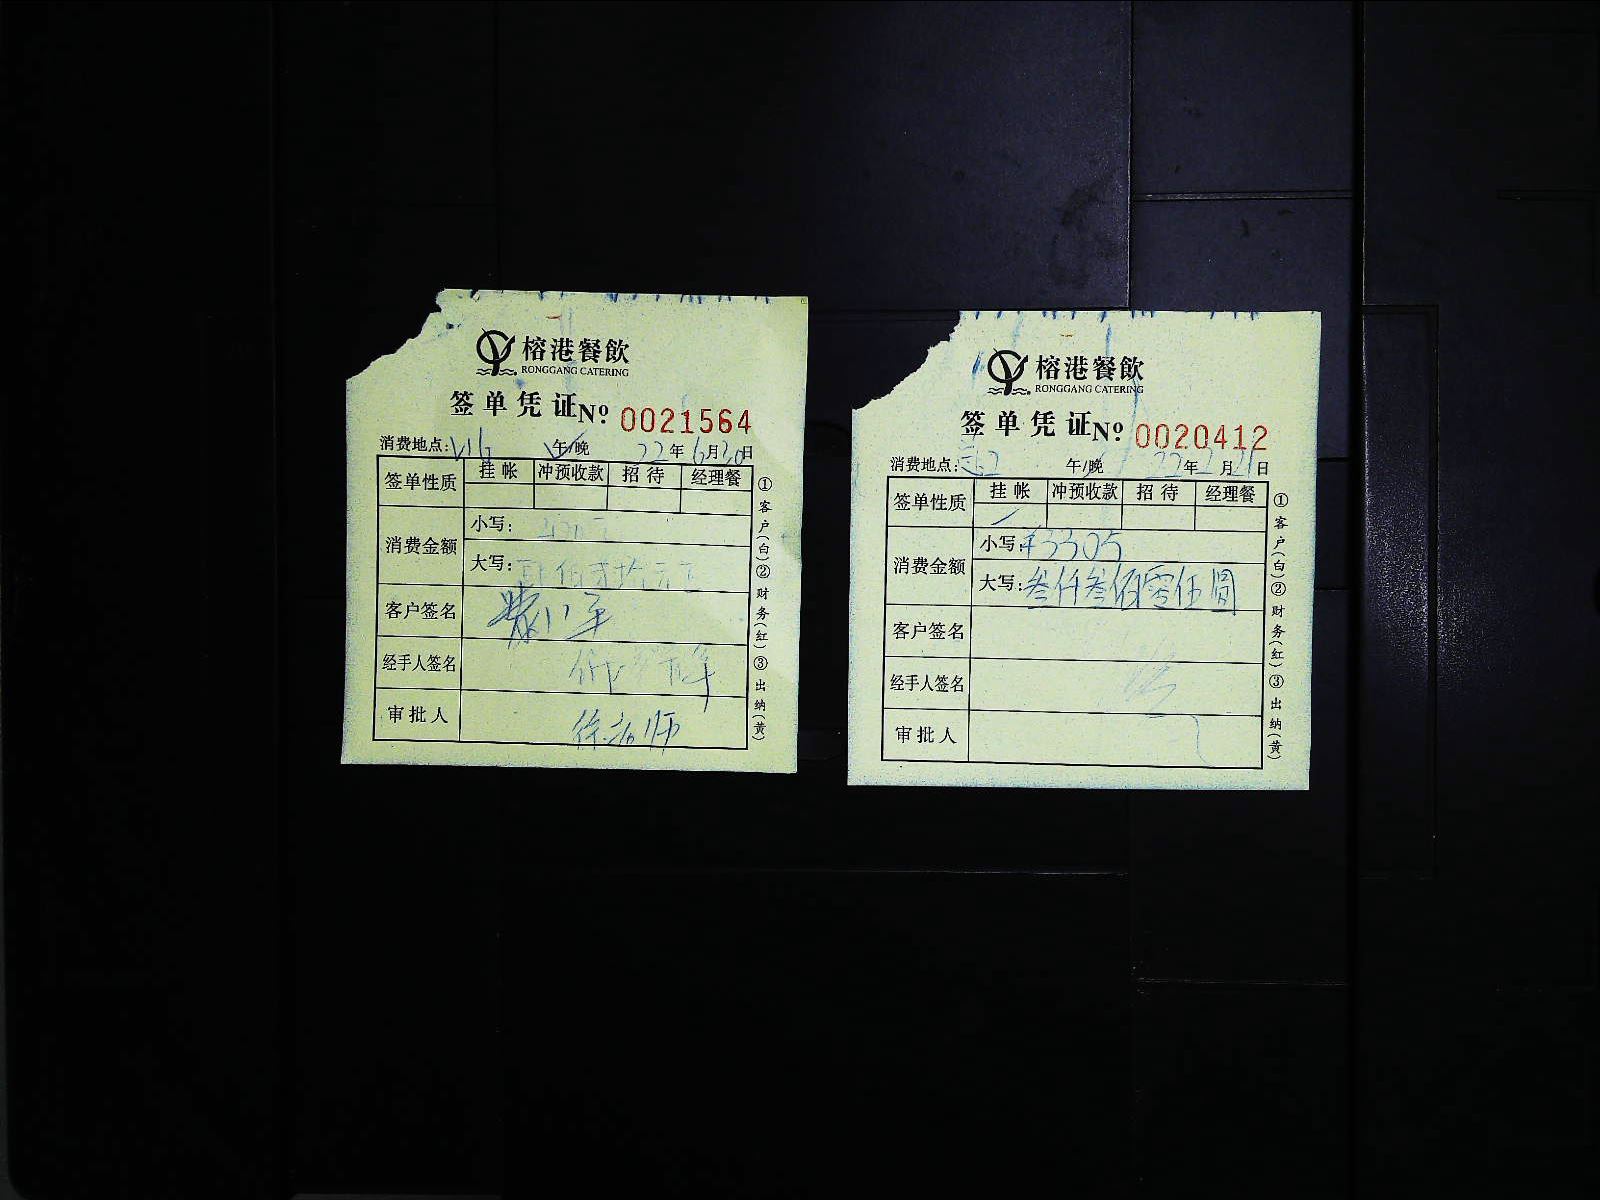 榕港餐飲
RONGGANG CATERING
签单凭证 Nº 0021564
消费地点: 午/晚 22年6月20日
签单性质 挂帐 冲预收款 招待 经理餐
消费金额
小写:
大写:
客户签名
经手人签名
审批人
①客户(白)②财务(红)③出纳(黄)
榕港餐飲
RONGGANG CATERING
签单凭证 Nº 0020412
消费地点: 午/晚 22年2月21日
签单性质 挂帐 冲预收款 招待 经理餐
消费金额
小写: ¥3305
大写: 叁仟叁佰零伍圆
客户签名
经手人签名
审批人
①客户(白)②财务(红)③出纳(黄)